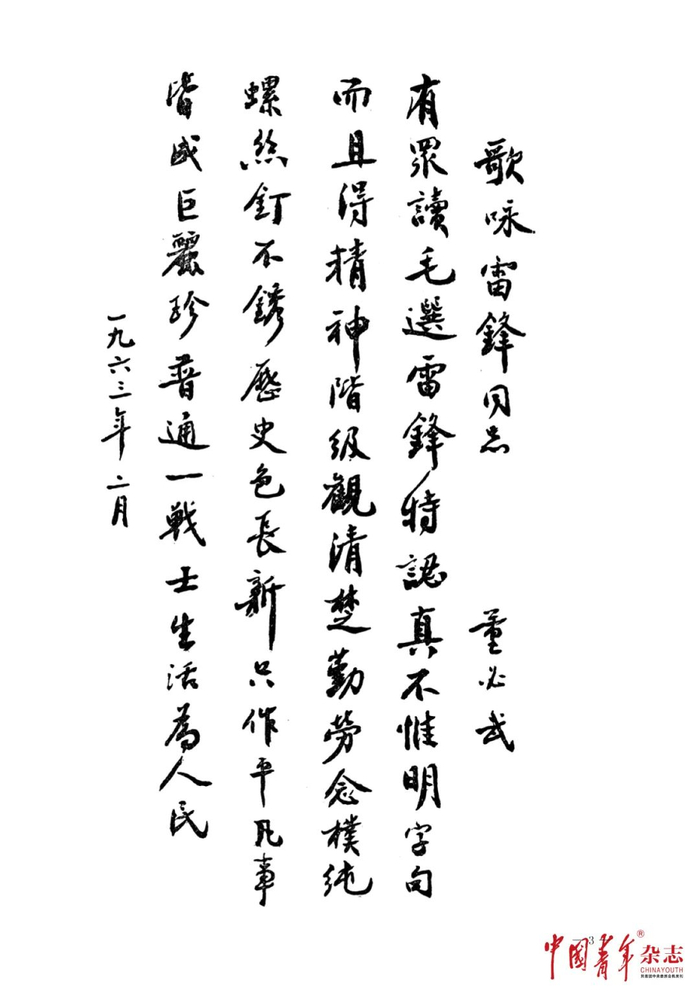 歌咏雷鋒同志
董必武
有眾讀毛選雷鋒特認真不惟明字句
而且得精神階級觀清楚勤勞念樸純
螺絲釘不銹歷史色長新只作平凡事
皆成巨麗珍普通一戰士生活為人民
一九六三年二月
3
中國青年®杂志
CHINAYOUTH